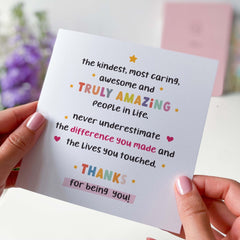 the kindest, most caring,
awesome and
TRULY AMAZING
people in life.
never underestimate
the difference you made and
the lives you touched.
THANKS
for being you!